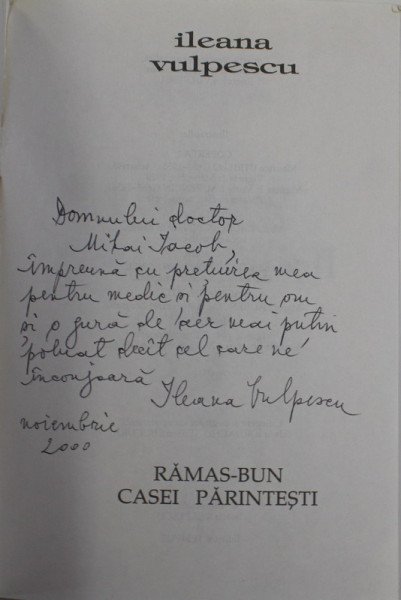 ileana
vulpescu
Domnului doctor
Mihai Iacob,
împreună cu prețuirea mea
pentru medic și pentru om
și o gură de aer mai puțin
poluat decît cel care ne
înconjoară
Ileana Vulpescu
noiembrie
2000
RĂMAS-BUN
CASEI PĂRINTEȘTI